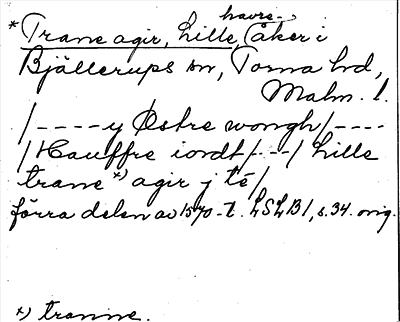 havre-
*Trane agir, Lille, (åker i
Bjällerups sn, Torna hd,
Malm. l.
/----y Østre wongh/----
/Hauffre iordt/---/ Lille
trane *) agir j té/
förra delen av 1570-t. LSLB1, s. 34. orig.
*) tranne.